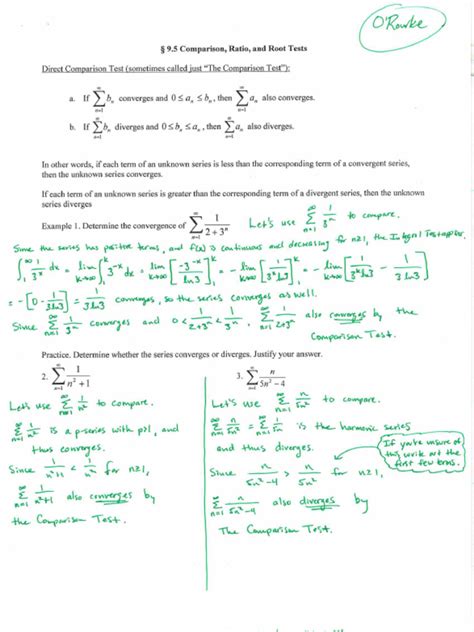 O'Rourke
§ 9.5 Comparison, Ratio, and Root Tests
Direct Comparison Test (sometimes called just "The Comparison Test"):
a. If ∑_{n=1}^{∞} b_n converges and 0 ≤ a_n ≤ b_n, then ∑_{n=1}^{∞} a_n also converges.
b. If ∑_{n=1}^{∞} b_n diverges and 0 ≤ b_n ≤ a_n, then ∑_{n=1}^{∞} a_n also diverges.
In other words, if each term of an unknown series is less than the corresponding term of a convergent series,
then the unknown series converges.
If each term of an unknown series is greater than the corresponding term of a divergent series, then the unknown
series diverges
Example 1. Determine the convergence of ∑_{n=1}^{∞} 1/(2+3^n) Let's use ∑_{n=1}^{∞} 1/3^n to compare.
Since the series has positive terms, and f(x) is continuous and decreasing for n≥1, the Integral Test applies
∫_1^∞ 1/3^x dx = lim_{k→∞} ∫_1^k 3^{-x} dx = lim_{k→∞} [-3^{-x}/ln3]_1^k = - lim_{k→∞} [1/(3^x ln3)]_1^k = - lim_{k→∞} [1/(3^k ln3) - 1/(3 ln3)]
= -[0 - 1/(3 ln3)] = 1/(3 ln3) converges, so the series converges as well.
Since ∑_{n=1}^{∞} 1/3^n converges and 0 < 1/(2+3^n) < 1/3^n, ∑_{n=1}^{∞} 1/(2+3^n) also converges by the
Comparison Test.
Practice. Determine whether the series converges or diverges. Justify your answer.
2. ∑_{n=1}^{∞} 1/(n²+1)
Let's use ∑_{n=1}^{∞} 1/n² to compare.
∑_{n=1}^{∞} 1/n² is a p-series with p>1, and
thus converges.
Since 1/(n²+1) < 1/n² for n≥1,
∑_{n=1}^{∞} 1/(n²+1) also converges by
the Comparison Test.
3. ∑_{n=1}^{∞} n/(5n²-4)
Let's use ∑_{n=1}^{∞} n/5n² to compare.
∑_{n=1}^{∞} n/5n² = ∑_{n=1}^{∞} is the harmonic series
and thus diverges.
Since n/(5n²-4) > n/5n² for n≥1,
∑_{n=1}^{∞} n/(5n²-4) also diverges by
The Comparison Test.
If you're unsure of
this write out the
first few terms.